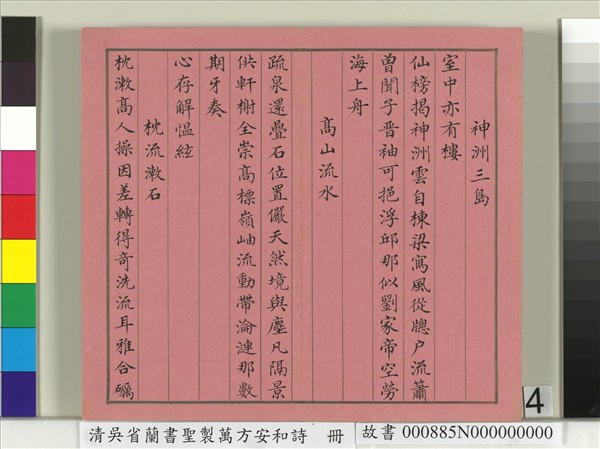 神洲三島
室中亦有樓
仙榜揭神洲雲自棟梁寫風從牕户流簫
曽聞子晋袖可挹浮邱那似劉家帝空勞
海上舟
髙山流水
疏泉還疊石位置儼天然境與塵凡隔景
供軒榭全崇髙標嶺岫流動帶淪漣那數
期牙奏
心存解愠絃
枕流漱石
枕漱髙人操因差轉得竒洗流耳雅合礪
4
清吳省蘭書聖製萬方安和詩 冊
故書 000885N000000000